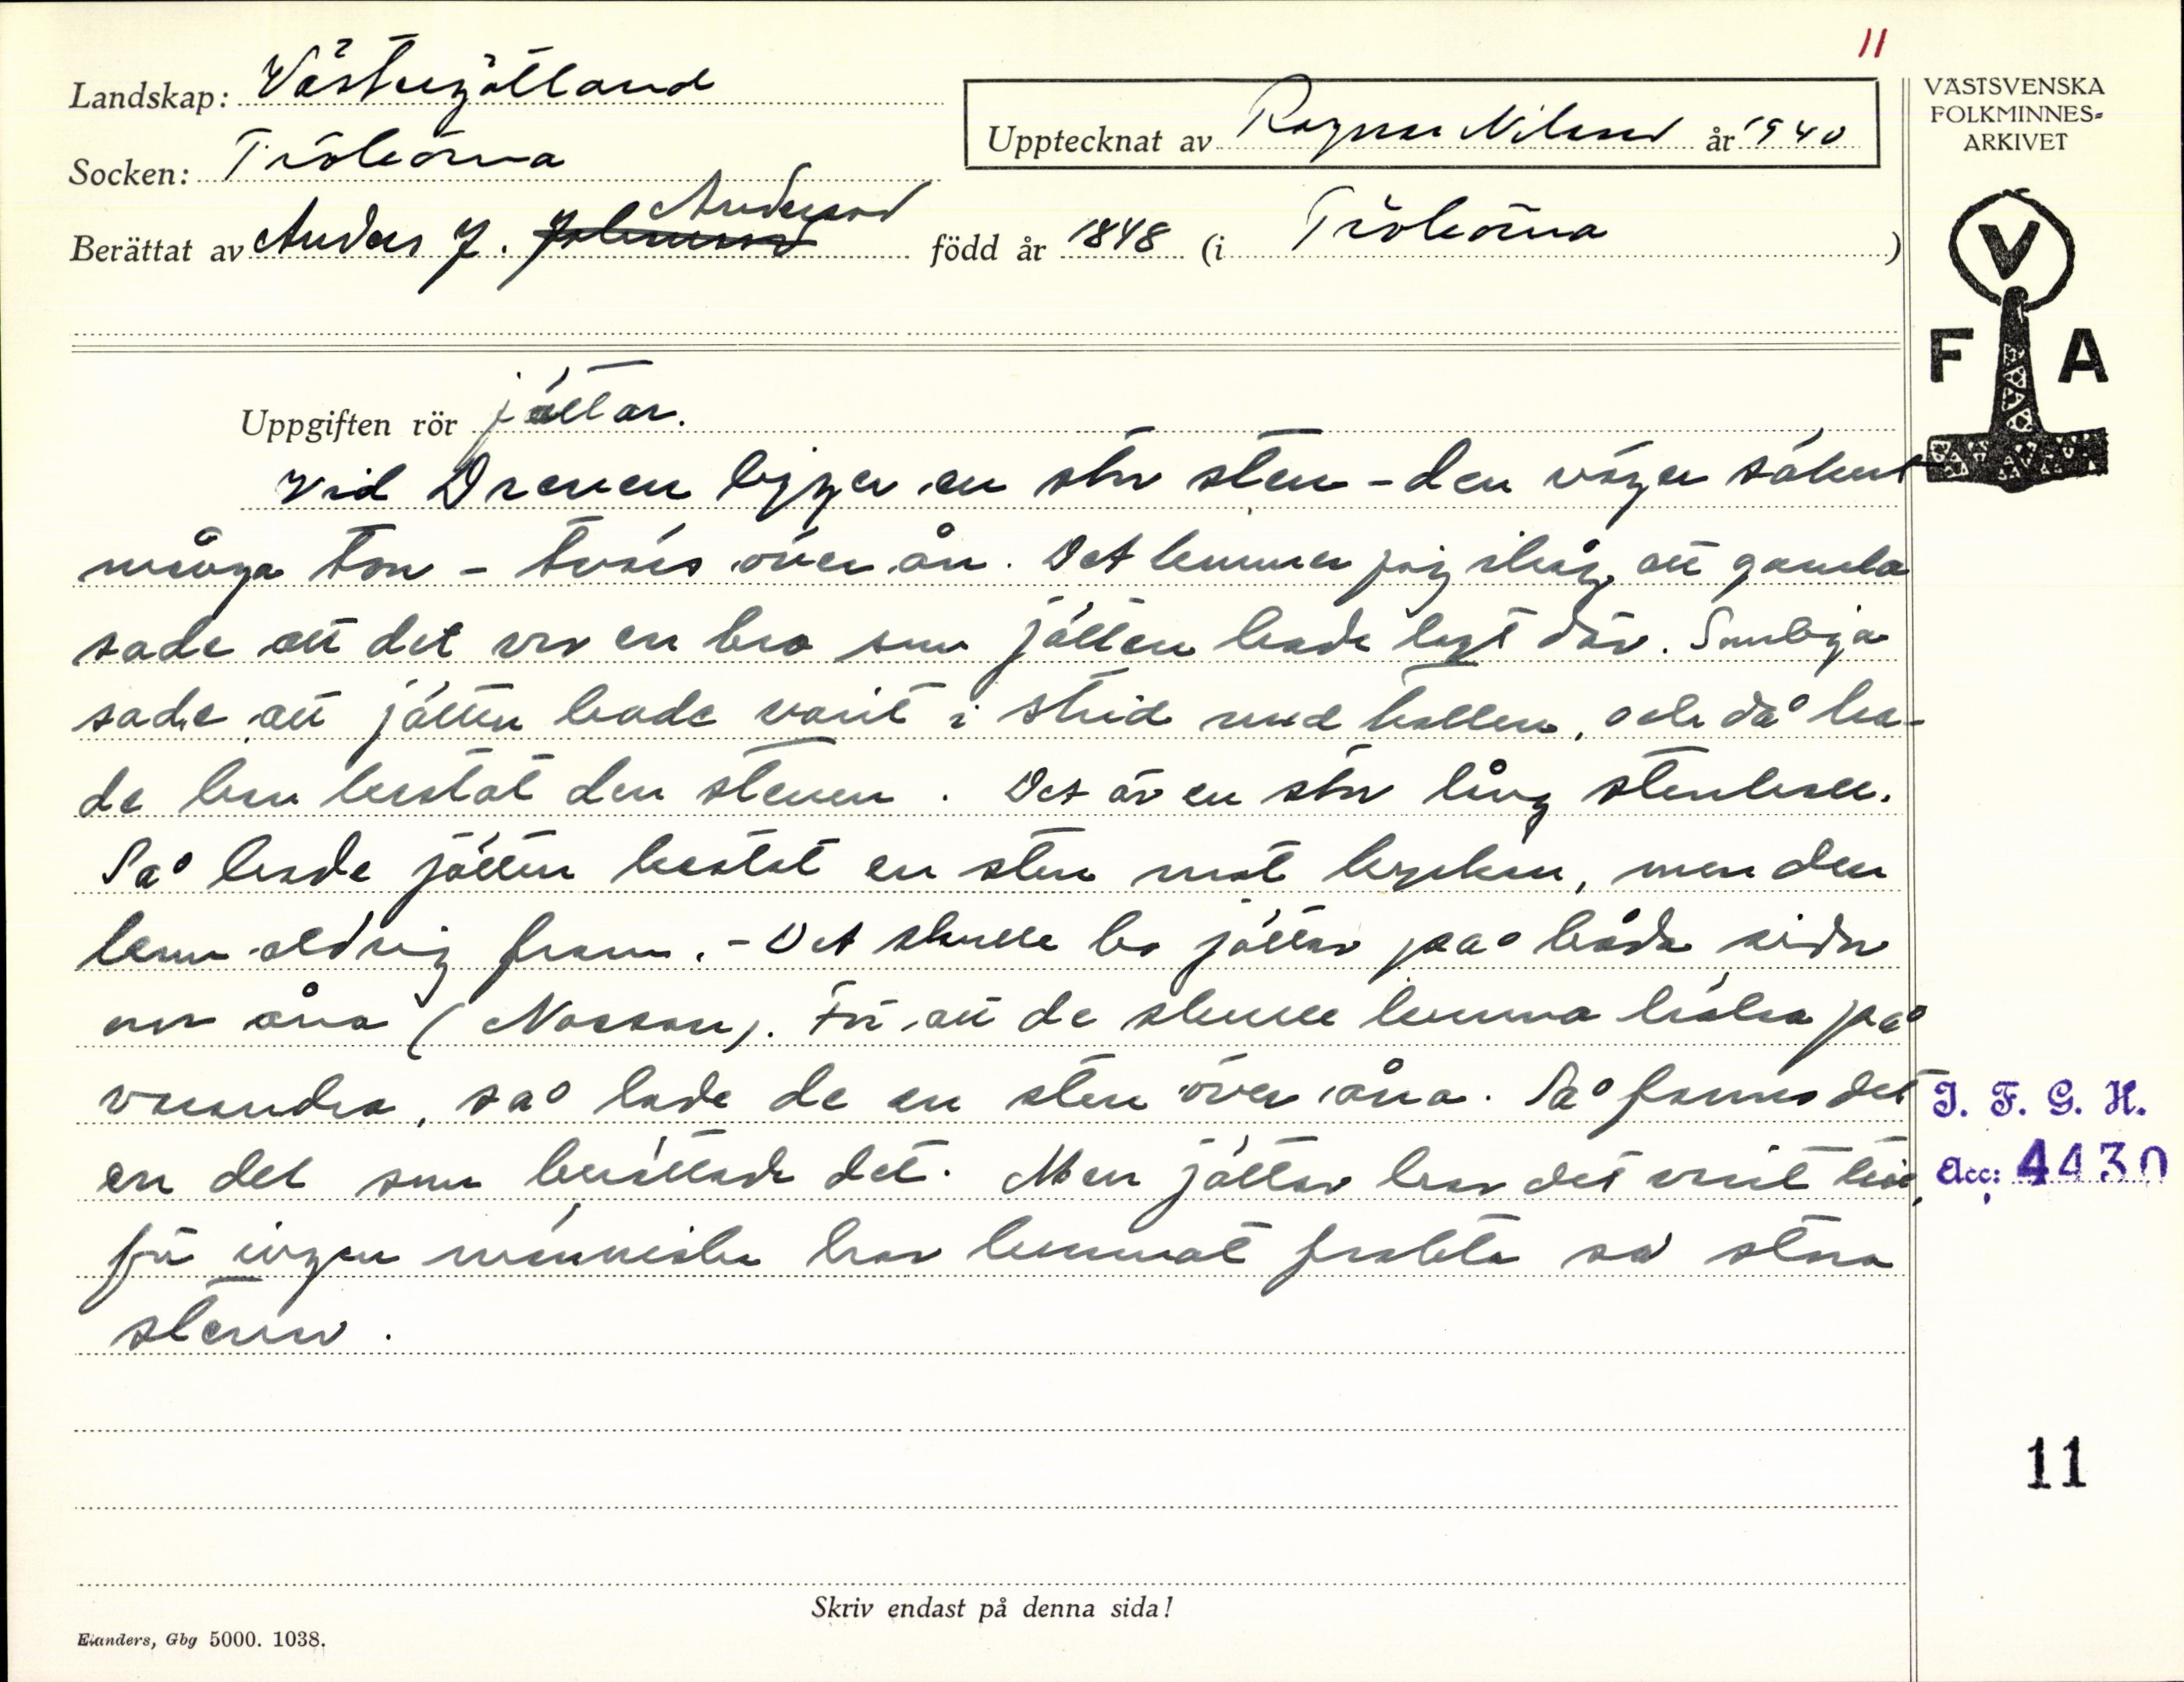 11
Landskap: Västergötland
Socken: Trökörna
Berättat av Anders J. Johansson Andersson född år 1848 (i Trökörna)
Upptecknat av Ragnar Nilsson år 1940
VÄSTSVENSKA
FOLKMINNES-
ARKIVET
V
F A
Uppgiften rör jättar.
Vid Dreven ligger en stor sten - den väger säkert
många ton - tvärs över ån. Det kommer jag ihåg, att gamla
sade att det var en bro som jätten hade lagt där. Somliga
sade att jätten hade varit i strid med trollen, och då ha-
de han kastat den stenen. Det är en stor lång stenhäll.
Så hade jätten kastat en sten mot kyrkan, men den
kom aldrig fram. - Det skulle bo jättar på båda sidor
om åna (Nossan). För att de skulle kunna hälsa på
varandra, så lade de en sten över åna. Så fanns det
en del som berättade det. Men jättar har det varit här,
för ingen människa har kunnat frakta så stora
stenar.
I. F. G. H.
Acc: 4430
11
Skriv endast på denna sida!
Elanders, Gbg 5000. 1038.